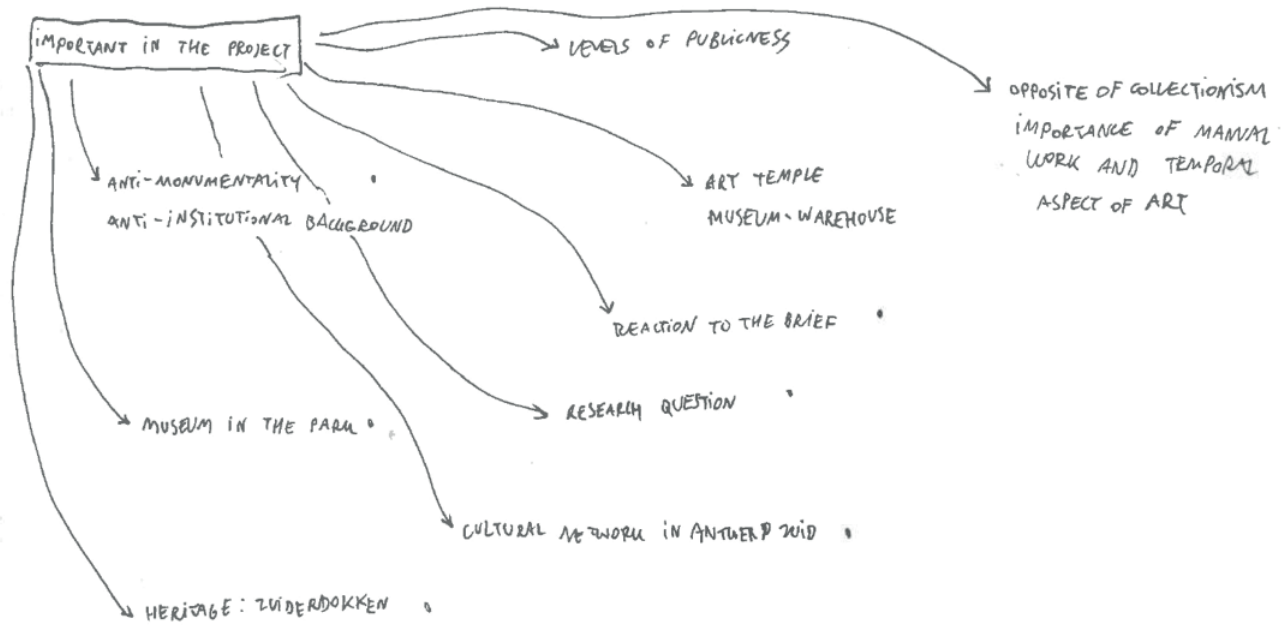 IMPORTANT IN THE PROJECT
LEVELS OF PUBLICNESS
OPPOSITE OF COLLECTIONISM
IMPORTANCE OF MANUAL
WORK AND TEMPORAL
ASPECT OF ART
ANTI-MONUMENTALITY
ANTI-INSTITUTIONAL BACKGROUND
ART TEMPLE
MUSEUM-WAREHOUSE
REACTION TO THE BRIEF
RESEARCH QUESTION
MUSEUM IN THE PARK
CULTURAL NETWORK IN ANTWERP ZUID
HERITAGE: ZUIDERDOKKEN